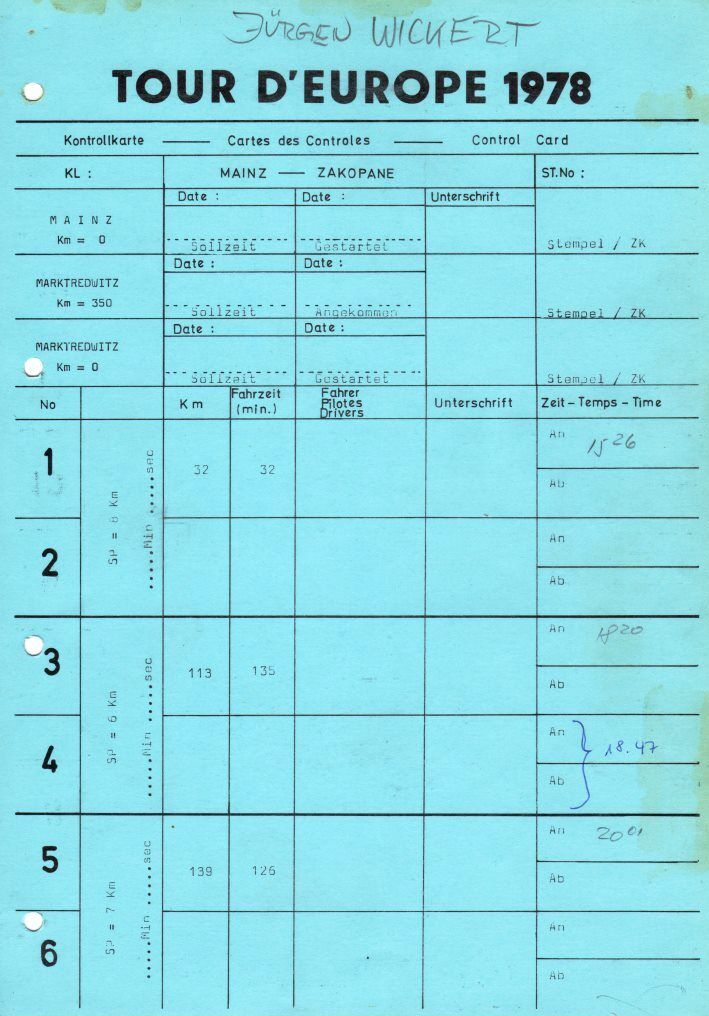 JÜRGEN WICKERT
TOUR D'EUROPE 1978
Kontrollkarte —— Cartes des Controles —— Control Card
KL : MAINZ — ZAKOPANE ST.No :
Date : Date : Unterschrift
MAINZ
Km = 0
Sollzeit Gestartet Stempel / ZK
Date : Date :
MARKTREDWITZ
Km = 350
Sollzeit Angekommen Stempel / ZK
Date : Date :
MARKTREDWITZ
Km = 0
Sollzeit Gestartet Stempel / ZK
No Km Fahrzeit (min.) Fahrer Pilotes Drivers Unterschrift Zeit - Temps - Time
1 SP = 8 Km .....Min .....sec 32 32 An 15 26
Ab
2 An
Ab
3 SP = 6 Km .....Min .....sec 113 135 An 1820
Ab
4 An 18.47
Ab
5 SP = 7 Km .....Min .....sec 139 126 An 20 01
Ab
6 An
Ab